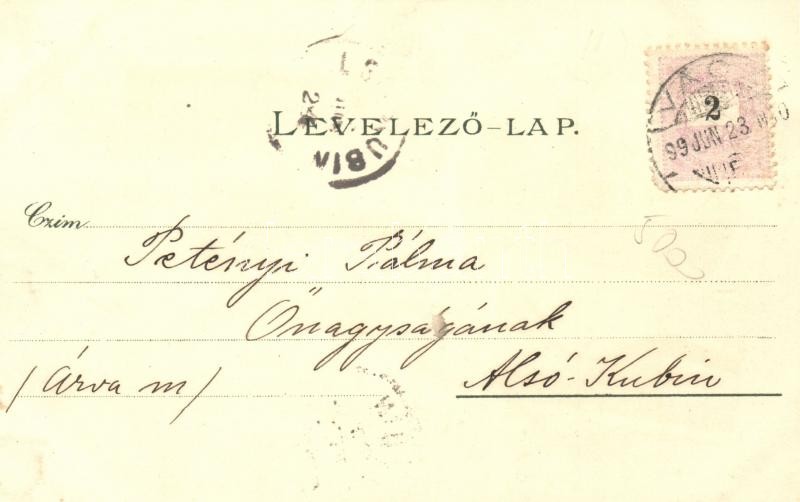 LEVELEZŐ-LAP.
2
99 JUN 23
UBIN
24
Czim
Petényi Pálma
Őnagyságának
/Árva m/ Alsó-Kubin
500